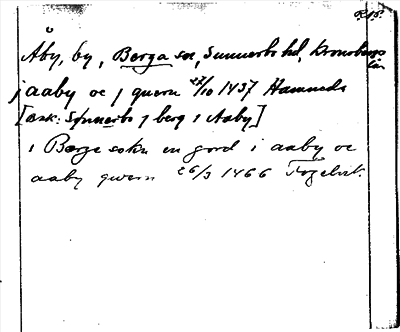 R 15.
Åby, by, Berga sn, Sunnerbo hd, Kronobergs
län
j aaby oc j quern 27/10 1437 Hammeds
[ask: Synnerbo j berg i Aaby]
i Berge sokn en gord i aaby oc
aaby qwern 26/3 1466